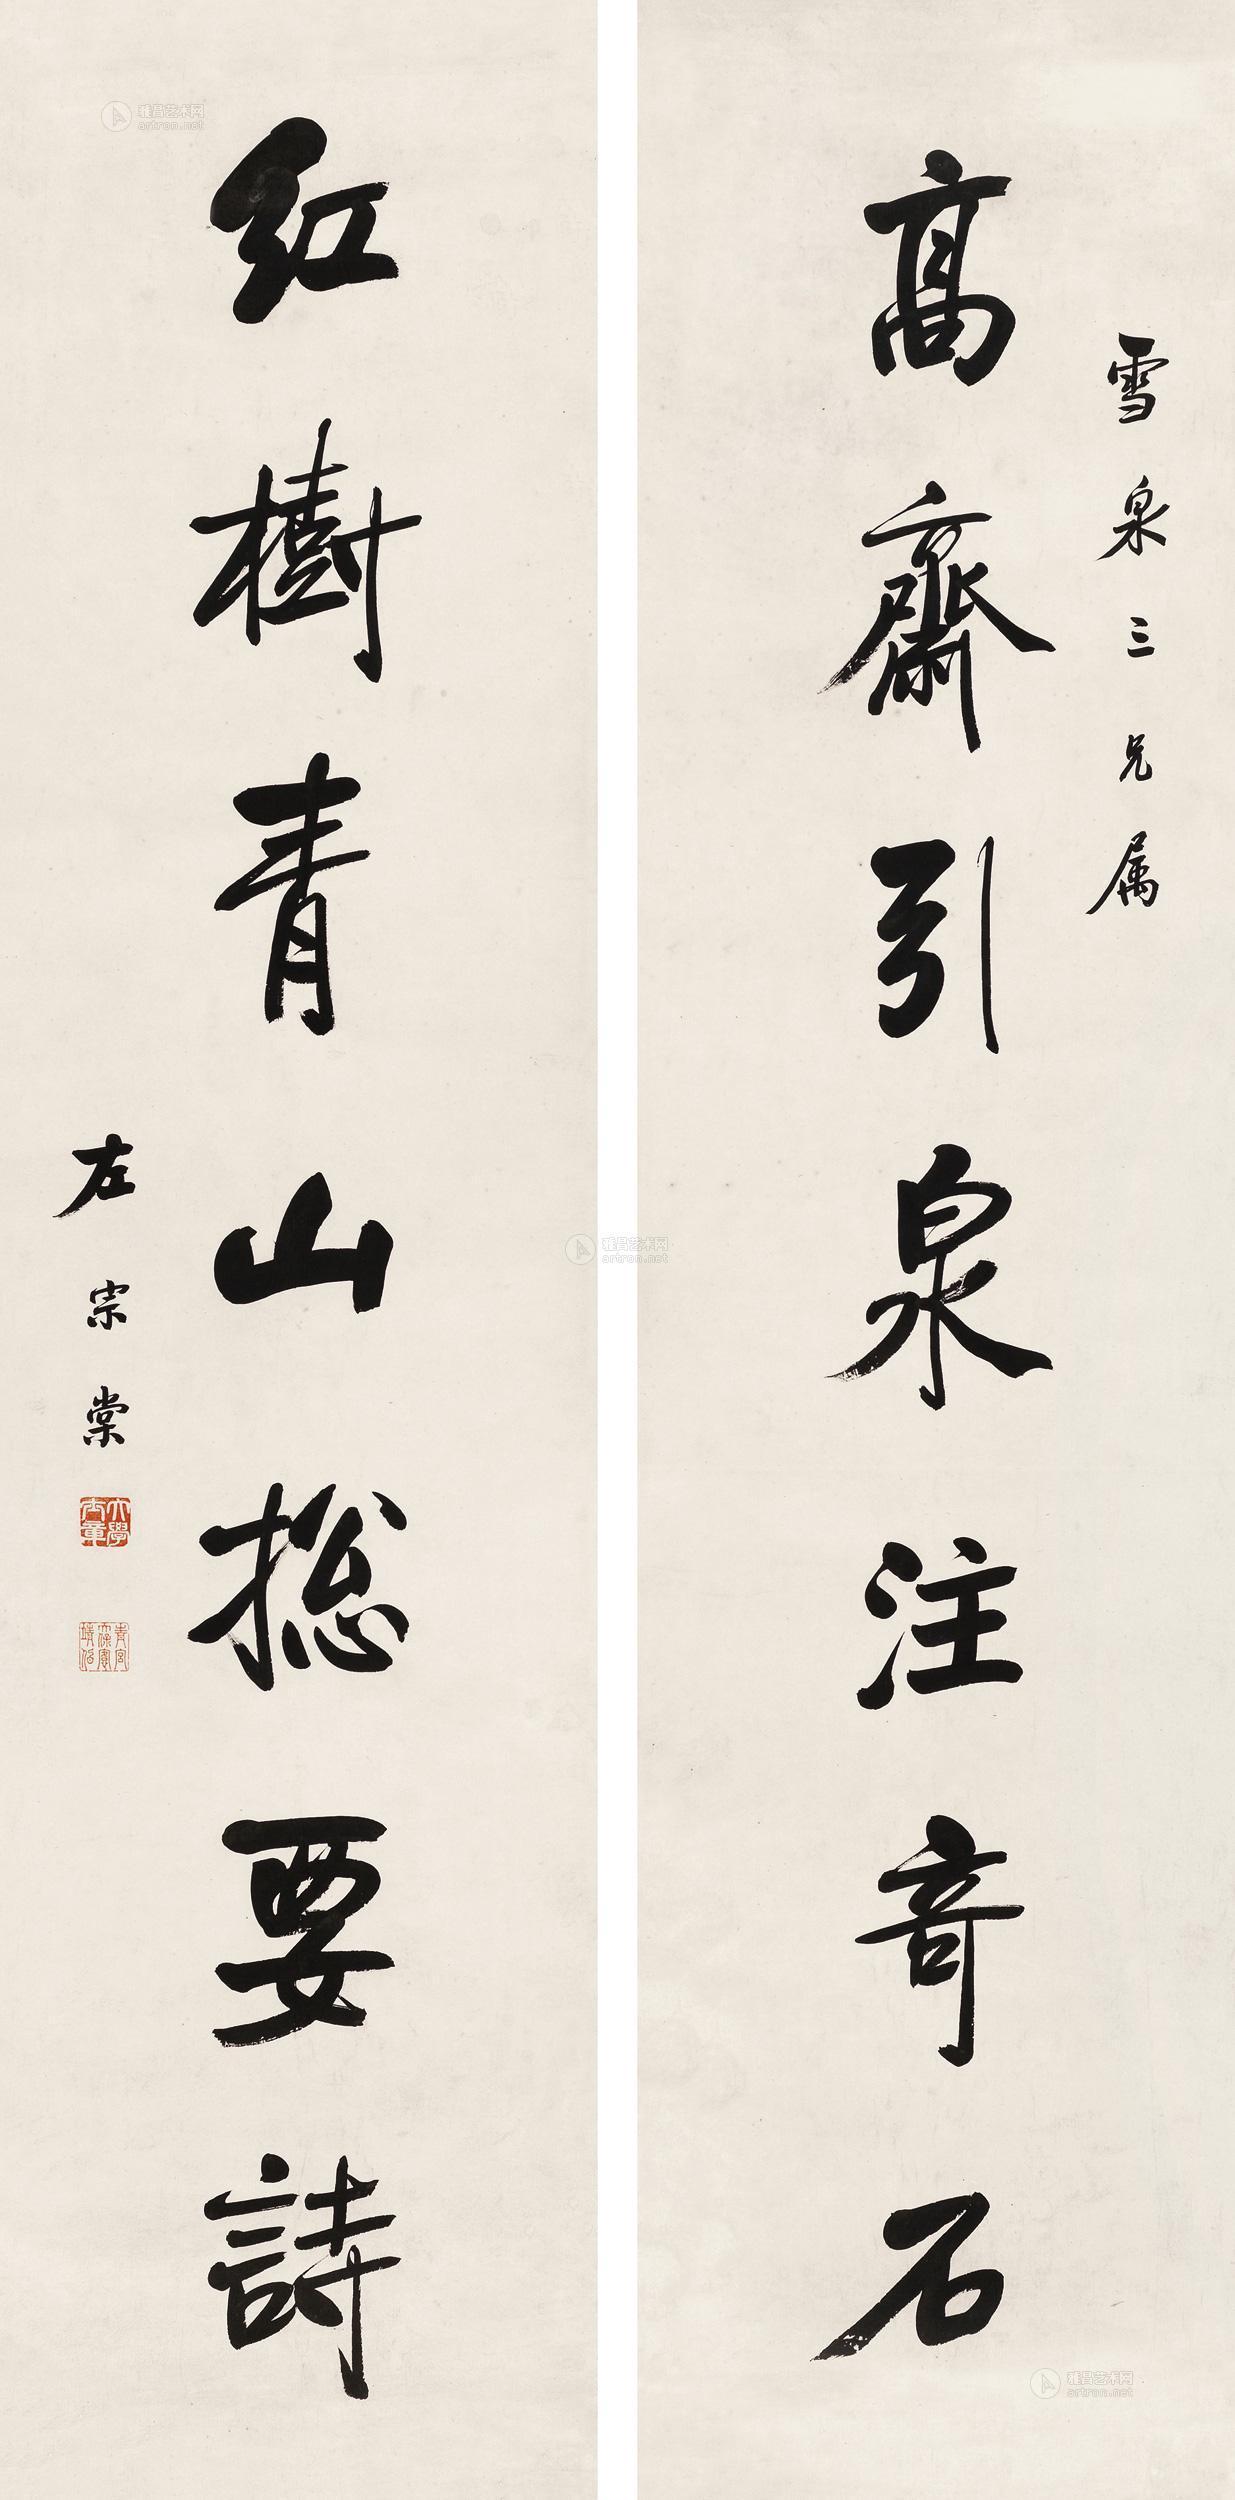 雪泉三兄属
高齋引泉注奇石
紅樹青山揔要詩
左宗棠
大學士章
青宮太保恪靖侯
雅昌艺术网
artron.net
雅昌艺术网
artron.net
雅昌艺术网
artron.net